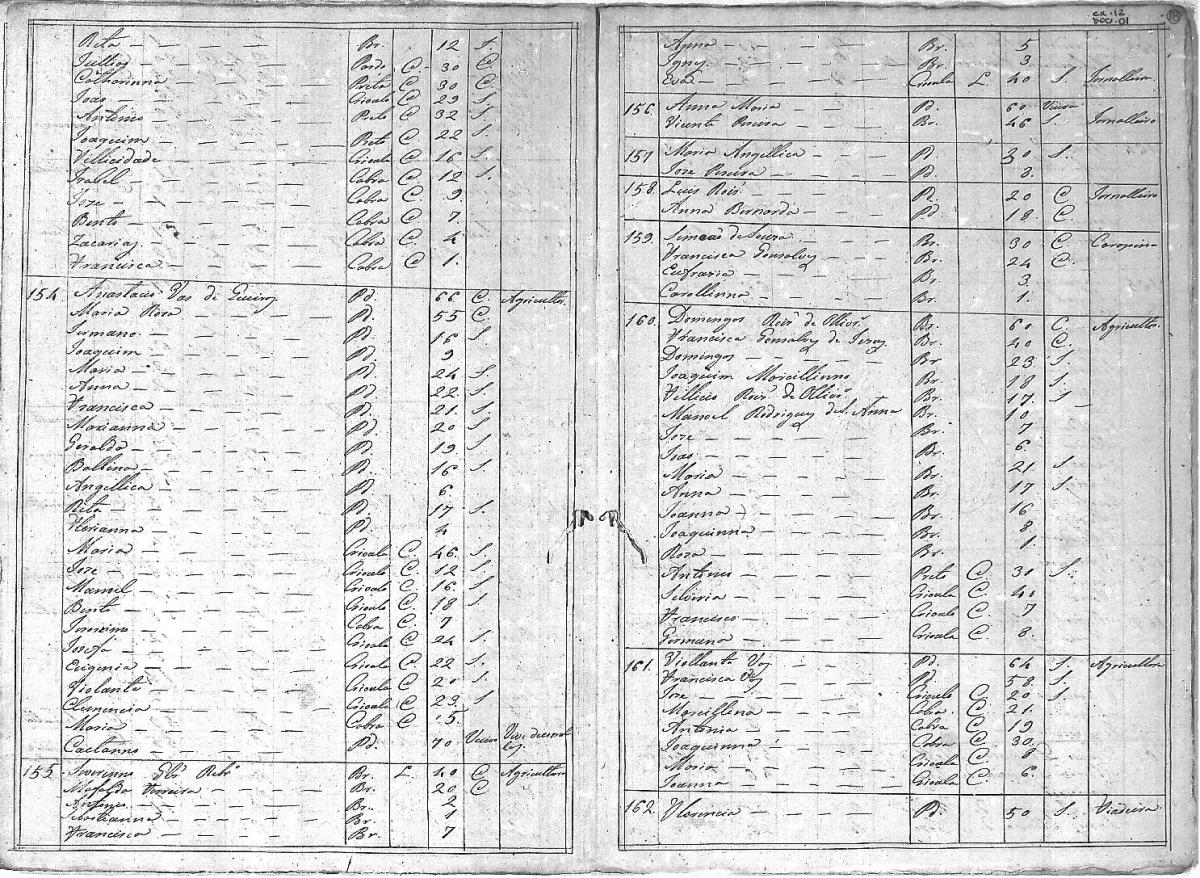 CX. 12
DOC. 01
18
Rita Br. 12 S.
Jullião Pardo C. 30 C
Catharinna Preta C. 30 C
João Crioulo C 29 S.
Antonio Preto C 32 S.
Joaquim Preto C 22 S.
Fellicidade Criola C 16 S.
Izabel Cabra C 12 S.
Joze Cabra C. 9
Bento Cabra C. 7.
Zacarias Cabra C. 4
Francisca Cabra C 1.
154 Anastacio Vas de Pd. 66 C. Agricultor
Maria Roza Pd. 55 C.
Germano Pd. 16 S.
Joaquim Pd. 9
Maria Pd. 24 S
Anna Pd. 22 S.
Francisca Pd. 21. S
Marianna Pd. 20 S
Geraldo Pd. 19 S
Balbina Pd. 16 S.
Angellica Pd. 6
Rita Pd. 17 S.
Florianna Pd. 4
Maria Crioula C. 46 S.
Joze Crioulo C. 12 S
Manoel Crioulo C. 16 S.
Bento Crioulo C. 18 S
Jeronimo Cabra C. 7
Josefa Crioula C. 24 S
Eugenia Crioula C. 22 S.
Violante Crioula C 20 S.
Clemencia Crioula C 29 S
Maria Cabra C 15.
Caetanno Pd. 70
155. Severinno Br. L. 40 C Agricultor
Mafalda Ferreira Br. 20 C
Antonio Br. 2
Sebastianna Br. 1
Francisca Br. 7
Anna Br. 5
Ignes Br. 3
Crioula L. 40 S. Jornalleira
156. Anna Maria Pd. 60 Viuva
Vicente Pereira Br. 46 S. Jornalleiro
157 Maria Angellica Pd. 30 S.
Joze Pereira Pd. 8.
158. Luis Roiz Pd. 20 C Jornalleiro
Anna Bernarda Pd. 18 C
159. Simeão de Souza Br. 30 C. Carapina
Francisca Gonsalves Br. 24 C.
Eufrazia Br. 3
Carollinna Br. 1.
160. Domingos Roiz de Ollivra Br. 60 C. Agricultor
Francisca Gonsalves de Jezus Br. 40 C.
Domingos Br. 23. S.
Joaquim Marcellinno Br. 18 S.
Fellicio Roiz de Ollivra Br. 17. S
Manoel Rodrigues de S. Anna Br. 10
Joze Br. 7
João Br. 6
Maria Br. 21 S.
Anna Br. 17 S
Joanna Br. 16
Joaquinna Br. 8
Roza Br. 1.
Antonio Preto C 30 S.
Silveria Crioula C. 40
Francisco Crioulo C. 7
Germana Crioula C. 8.
161. Viollante Vaz Pd. 64 S. Agricultora
Francisca Vaz Pd. 58. S.
Joze Crioulo C. 20 S
Marcellina Cabra C. 21.
Antonia Cabra C 19
Joaquinna Cabra C. 30
Maria Crioula C. 8
Joanna Crioula C. 6
162. Florencia Pd. 50 S. Fiadeira